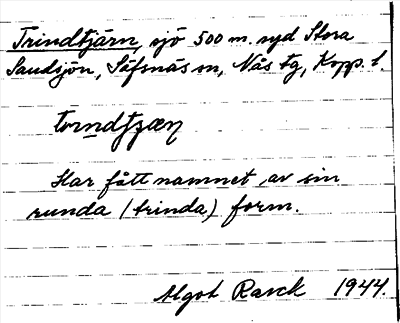 Trindtjärn, sjö 500 m. syd Stora
Sandsjön, Säfsnäs sn, Nås tg, Kopp. l.
Har fått namnet av sin
runda (trinda) form.
Algot Rasck 1944.